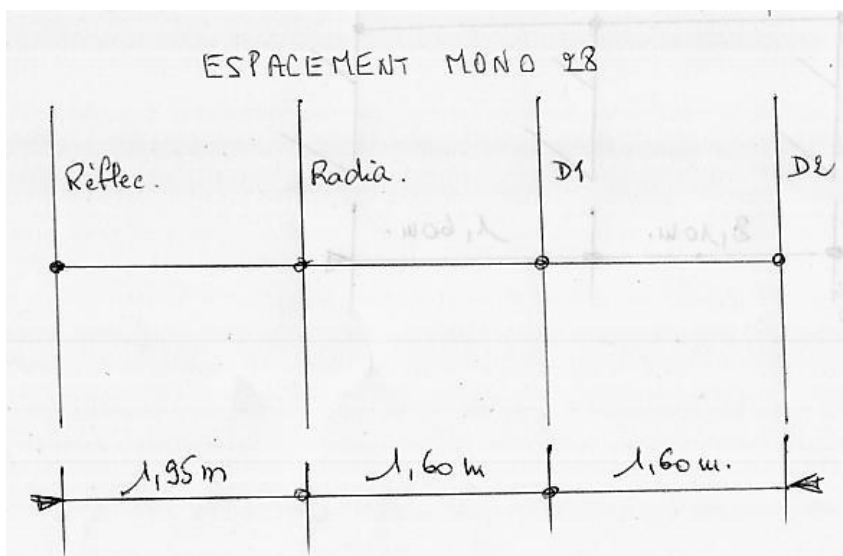 ESPACEMENT MONO 28
Réflec. Radia. D1 D2
1,60m. 2,10m.
1,95m 1,60m 1,60m.